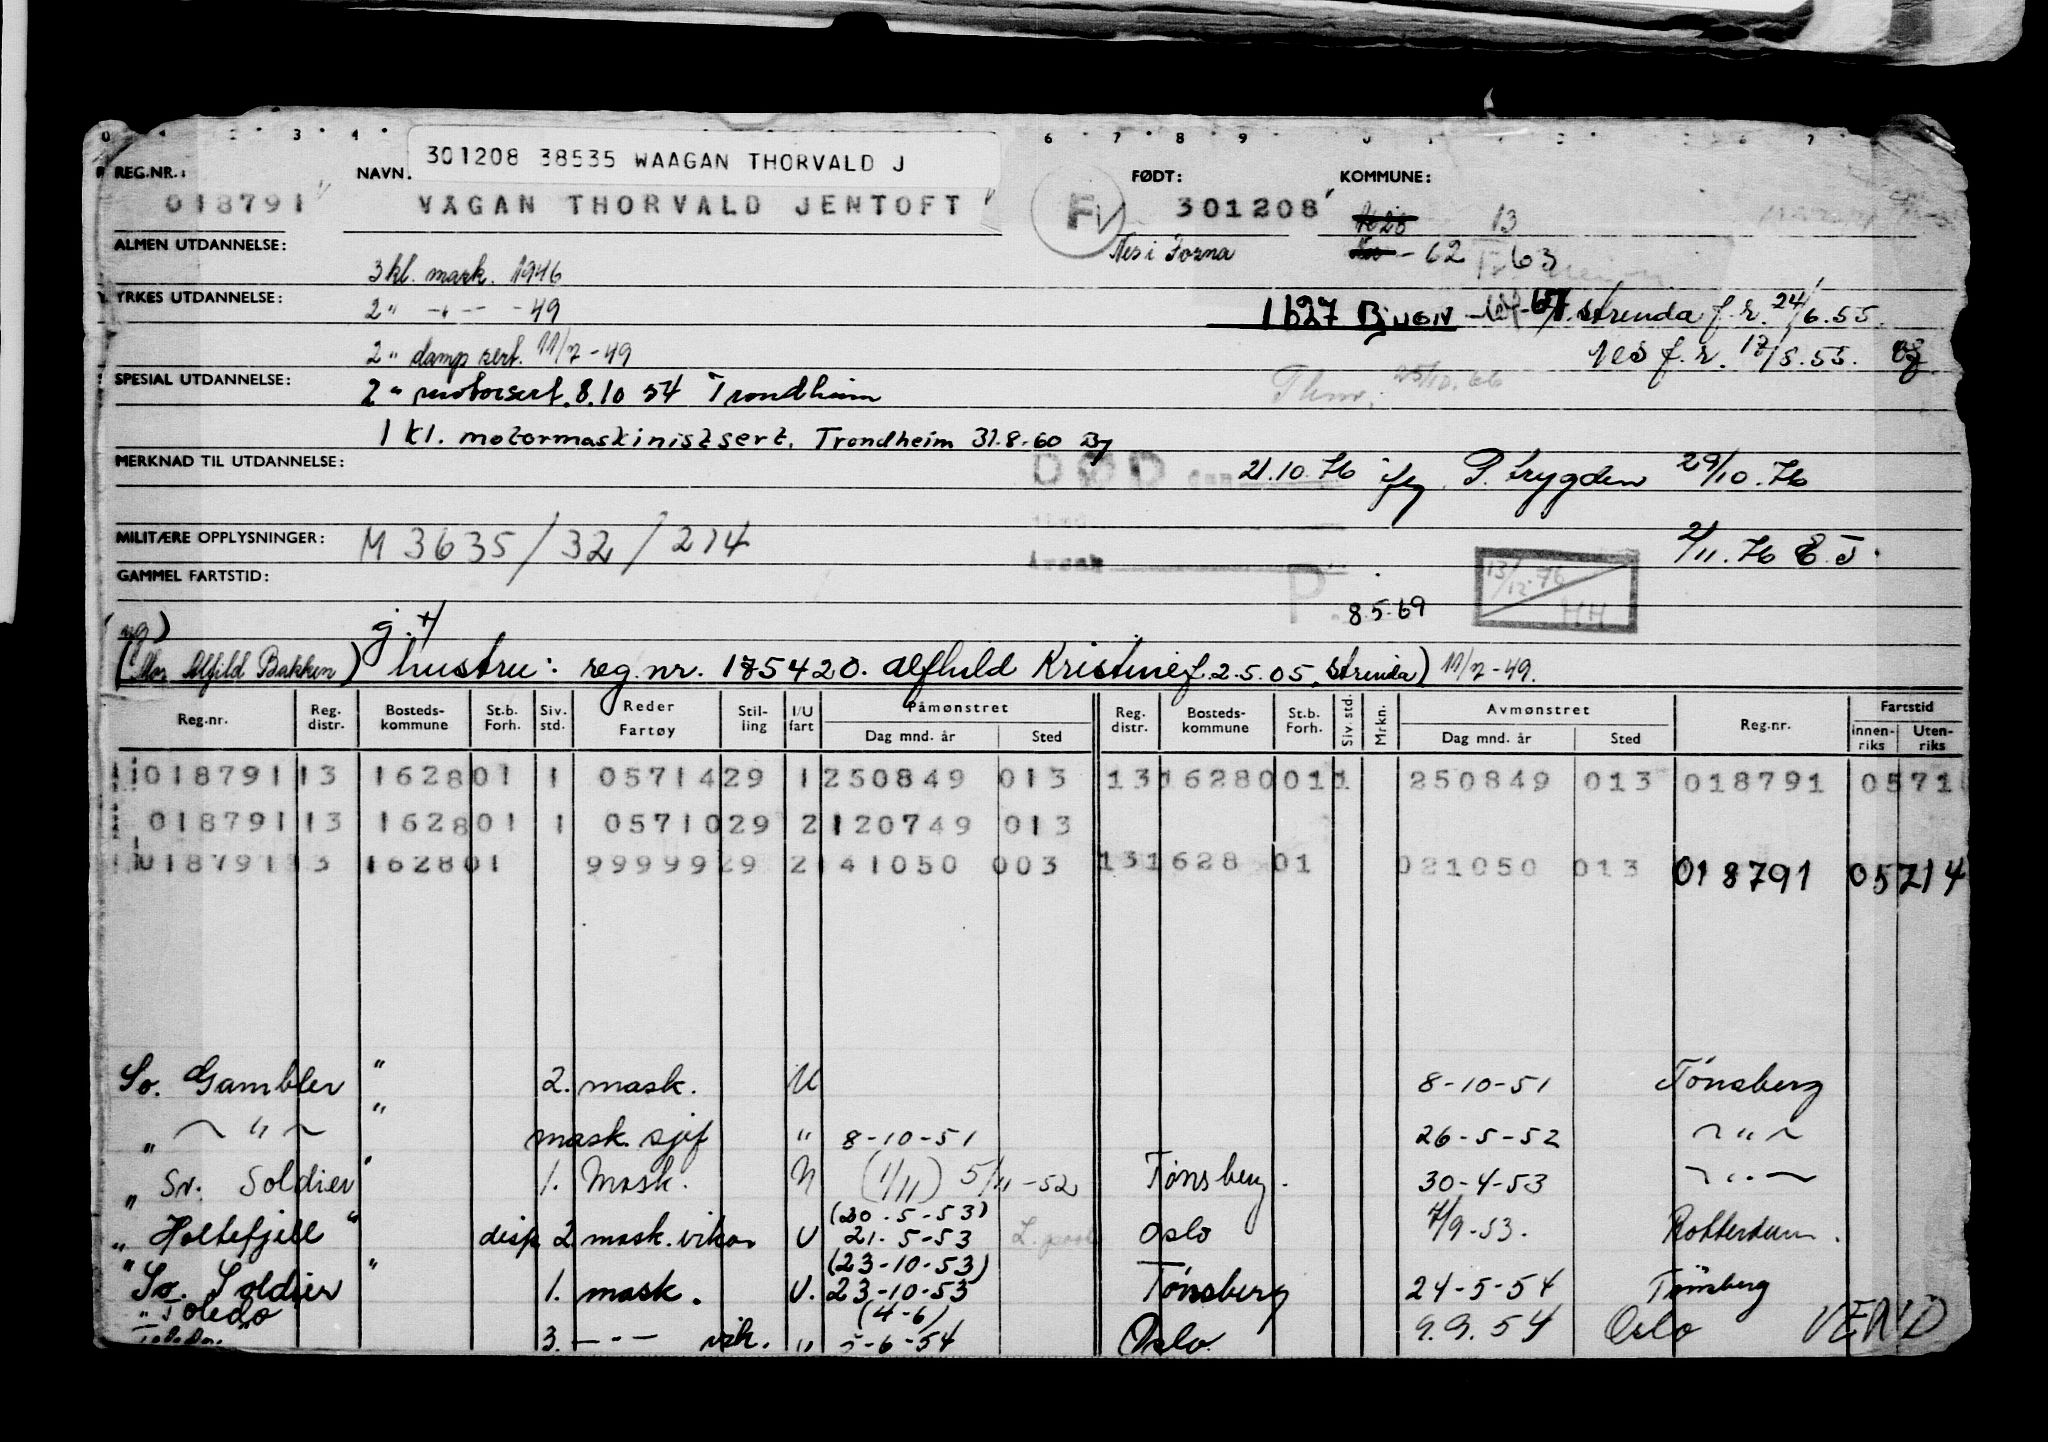 301208 38535 WAAGAN THORVALD J
REG.NR.: NAVN. FØDT: KOMMUNE:
018791 VAGAN THORVALD JENTOFT Fv 301208 13
ALMEN UTDANNELSE: Nes i Fosna - 62 63
3 kl. mask. 1946
YRKES UTDANNELSE: 2 " - " - - 49 1627 BJUGN strenda f.r. 24/6.55.
2 " damp sert. 11/7-49 f.r. 17/8.55.
SPESIAL UTDANNELSE: 2 " motorsert. 8.10 54 Trondheim 25/10.66
1 kl. motormaskinistsert. Trondheim 31.8-60
MERKNAD TIL UTDANNELSE: DØD den 21.10.76 P. trygden 29/10.76
MILITÆRE OPPLYSNINGER: M 3635/32/214 2/11.76 E.J.
GAMMEL FARTSTID: Årsak P. 8.5.69 13/12.76 HH
(ug) g.+
(Mor Alfild Bakken) hustru: reg.nr. 175420. Alfhild Kristine f. 2.5.05, strinda) 11/7-49.
Reg.nr. Reg. distr. Bosteds-kommune St.b. Forh. Siv. std. Reder Fartøy Stil-ling I/U fart Påmønstret Dag mnd. år Sted Reg. distr. Bosteds-kommune St.b. Forh. Siv. std. Mrkn. Avmønstret Dag mnd. år Sted Reg.nr. Fartstid Innen-riks Uten-riks
018791 13 1628 01 1 05714 29 1 250849 013 13 16280 01 1 250849 013 018791 0571
018791 13 1628 01 1 05710 29 2 120749 013
018791 13 1628 01 99999 29 2 141050 003 13 1628 01 021050 013 018791 05714
So. Gambler " 2. mask. U 8-10-51 Tönsberg
" - " - " mask. sjef " 8-10-51 26-5-52 - " -
" So. Soldier " 1. Mask. U (1/11) 5/11-52 Tönsberg. 30-4-53 - " -
(20.5-53)
" Holtefjell " disp 2 mask. vikar U 21.5-53 Oslo 7/9-53. Rotterdam.
(23-10-53)
" So. Soldier " 1. mask. U. 23-10-53 Tönsberg 24-5-54 Tönsberg
" Toledo (4-6)
3. - " - vik. " 5-6-54 Oslo 9.9.54 Oslo VEND